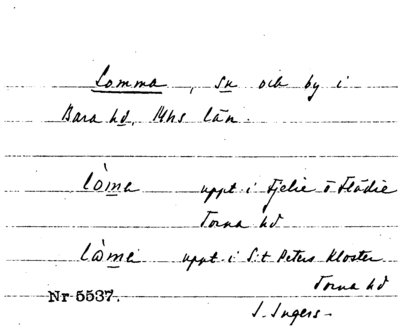 Lomma, sn och by i
Bara hd, Mhs län.
lòma uppt i Fjelie o Flädie
Torna hd
lòma uppt i S:t Peters Kloster
Torna hd
Nr 5537.
I. Ingers.